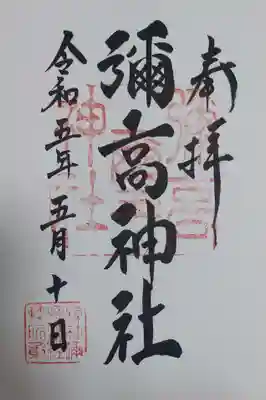 奉拝
彌高神社
令和五年五月十日